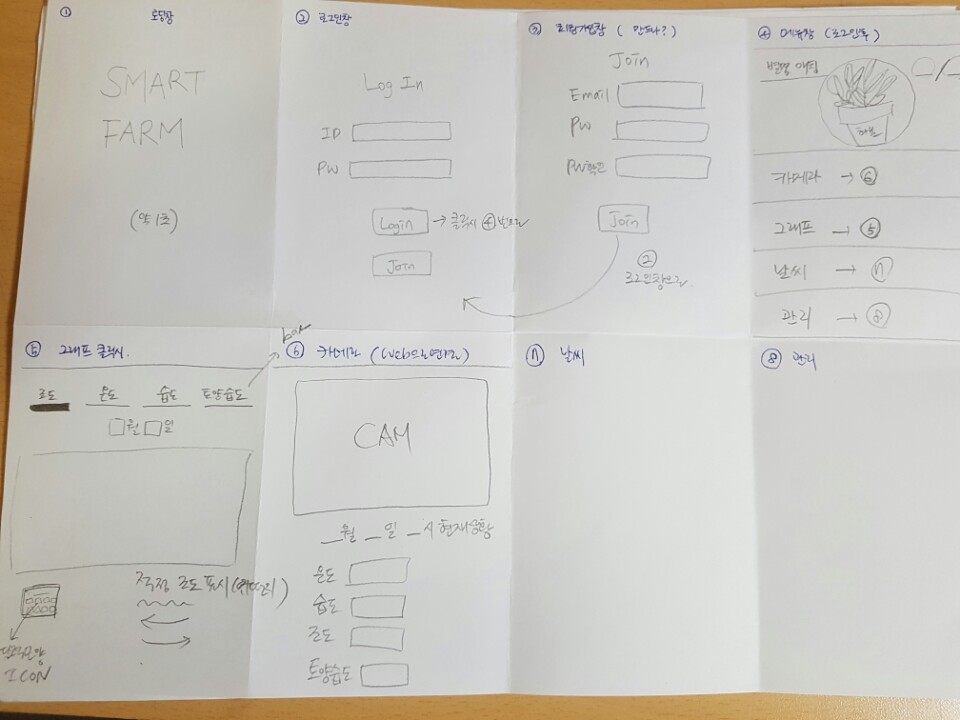 ① 로딩창
SMART
FARM
(약 1초)
② 로그인창
Log In
ID
PW
Login → 클릭시 ④번으로
Join
③ 회원가입창 ( 만드나?)
Join
Email
PW
PW확인
Join
②
로그인창으로
④ 메뉴창 (로그인후)
별명 애칭
/
허브
카메라 → ⑥
그래프 → ⑤
날씨 → ⑦
관리 → ⑧
⑤ 그래프 클릭시.
bar
조도 온도 습도 토양습도
월 일
적정 조도 표시
달력모양
ICON
⑥ 카메라 (Web으로연결)
CAM
_월 _일 _시 현재상황
온도
습도
조도
토양습도
⑦ 날씨
⑧ 관리